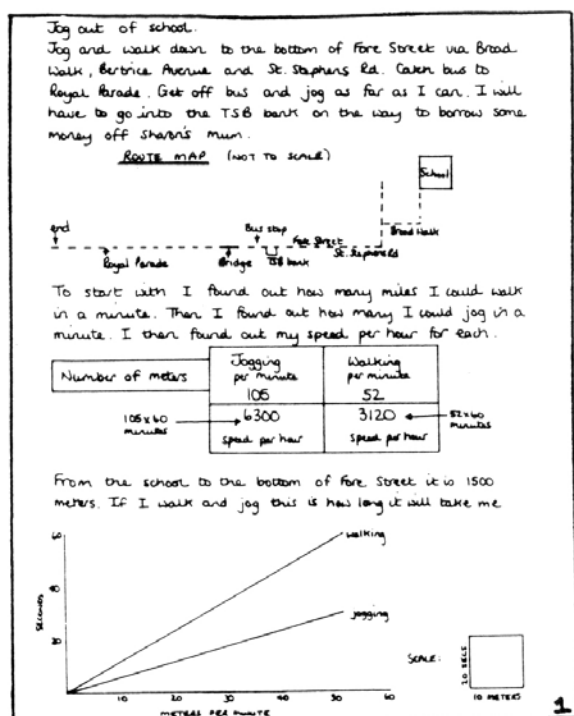 Jog out of school.
Jog and walk down to the bottom of Fore Street via Broad
Walk, Bertrice Avenue and St. Stephens Rd. Catch bus to
Royal Parade. Get off bus and jog as far as I can. I will
have to go into the TSB bank on the way to borrow some
money off Sharon's mum.
ROUTE MAP (NOT TO SCALE)
School
end
Bus stop
Fore Street
Broad Walk
Royal Parade
Bridge
TSB bank
St. Stephens Rd
To start with I found out how many miles I could walk
in a minute. Then I found out how many I could jog in a
minute. I then found out my speed per hour for each.
Number of meters
Jogging
per minute
105
Walking
per minute
52
105 x 60
minutes
6300
speed per hour
3120
speed per hour
52 x 60
minutes
From the school to the bottom of Fore Street it is 1500
meters. If I walk and jog this is how long it will take me
walking
jogging
SECONDS
20
10
20
30
40
50
60
METERS PER MINUTE
SCALE:
20 SECS
10 METERS
1